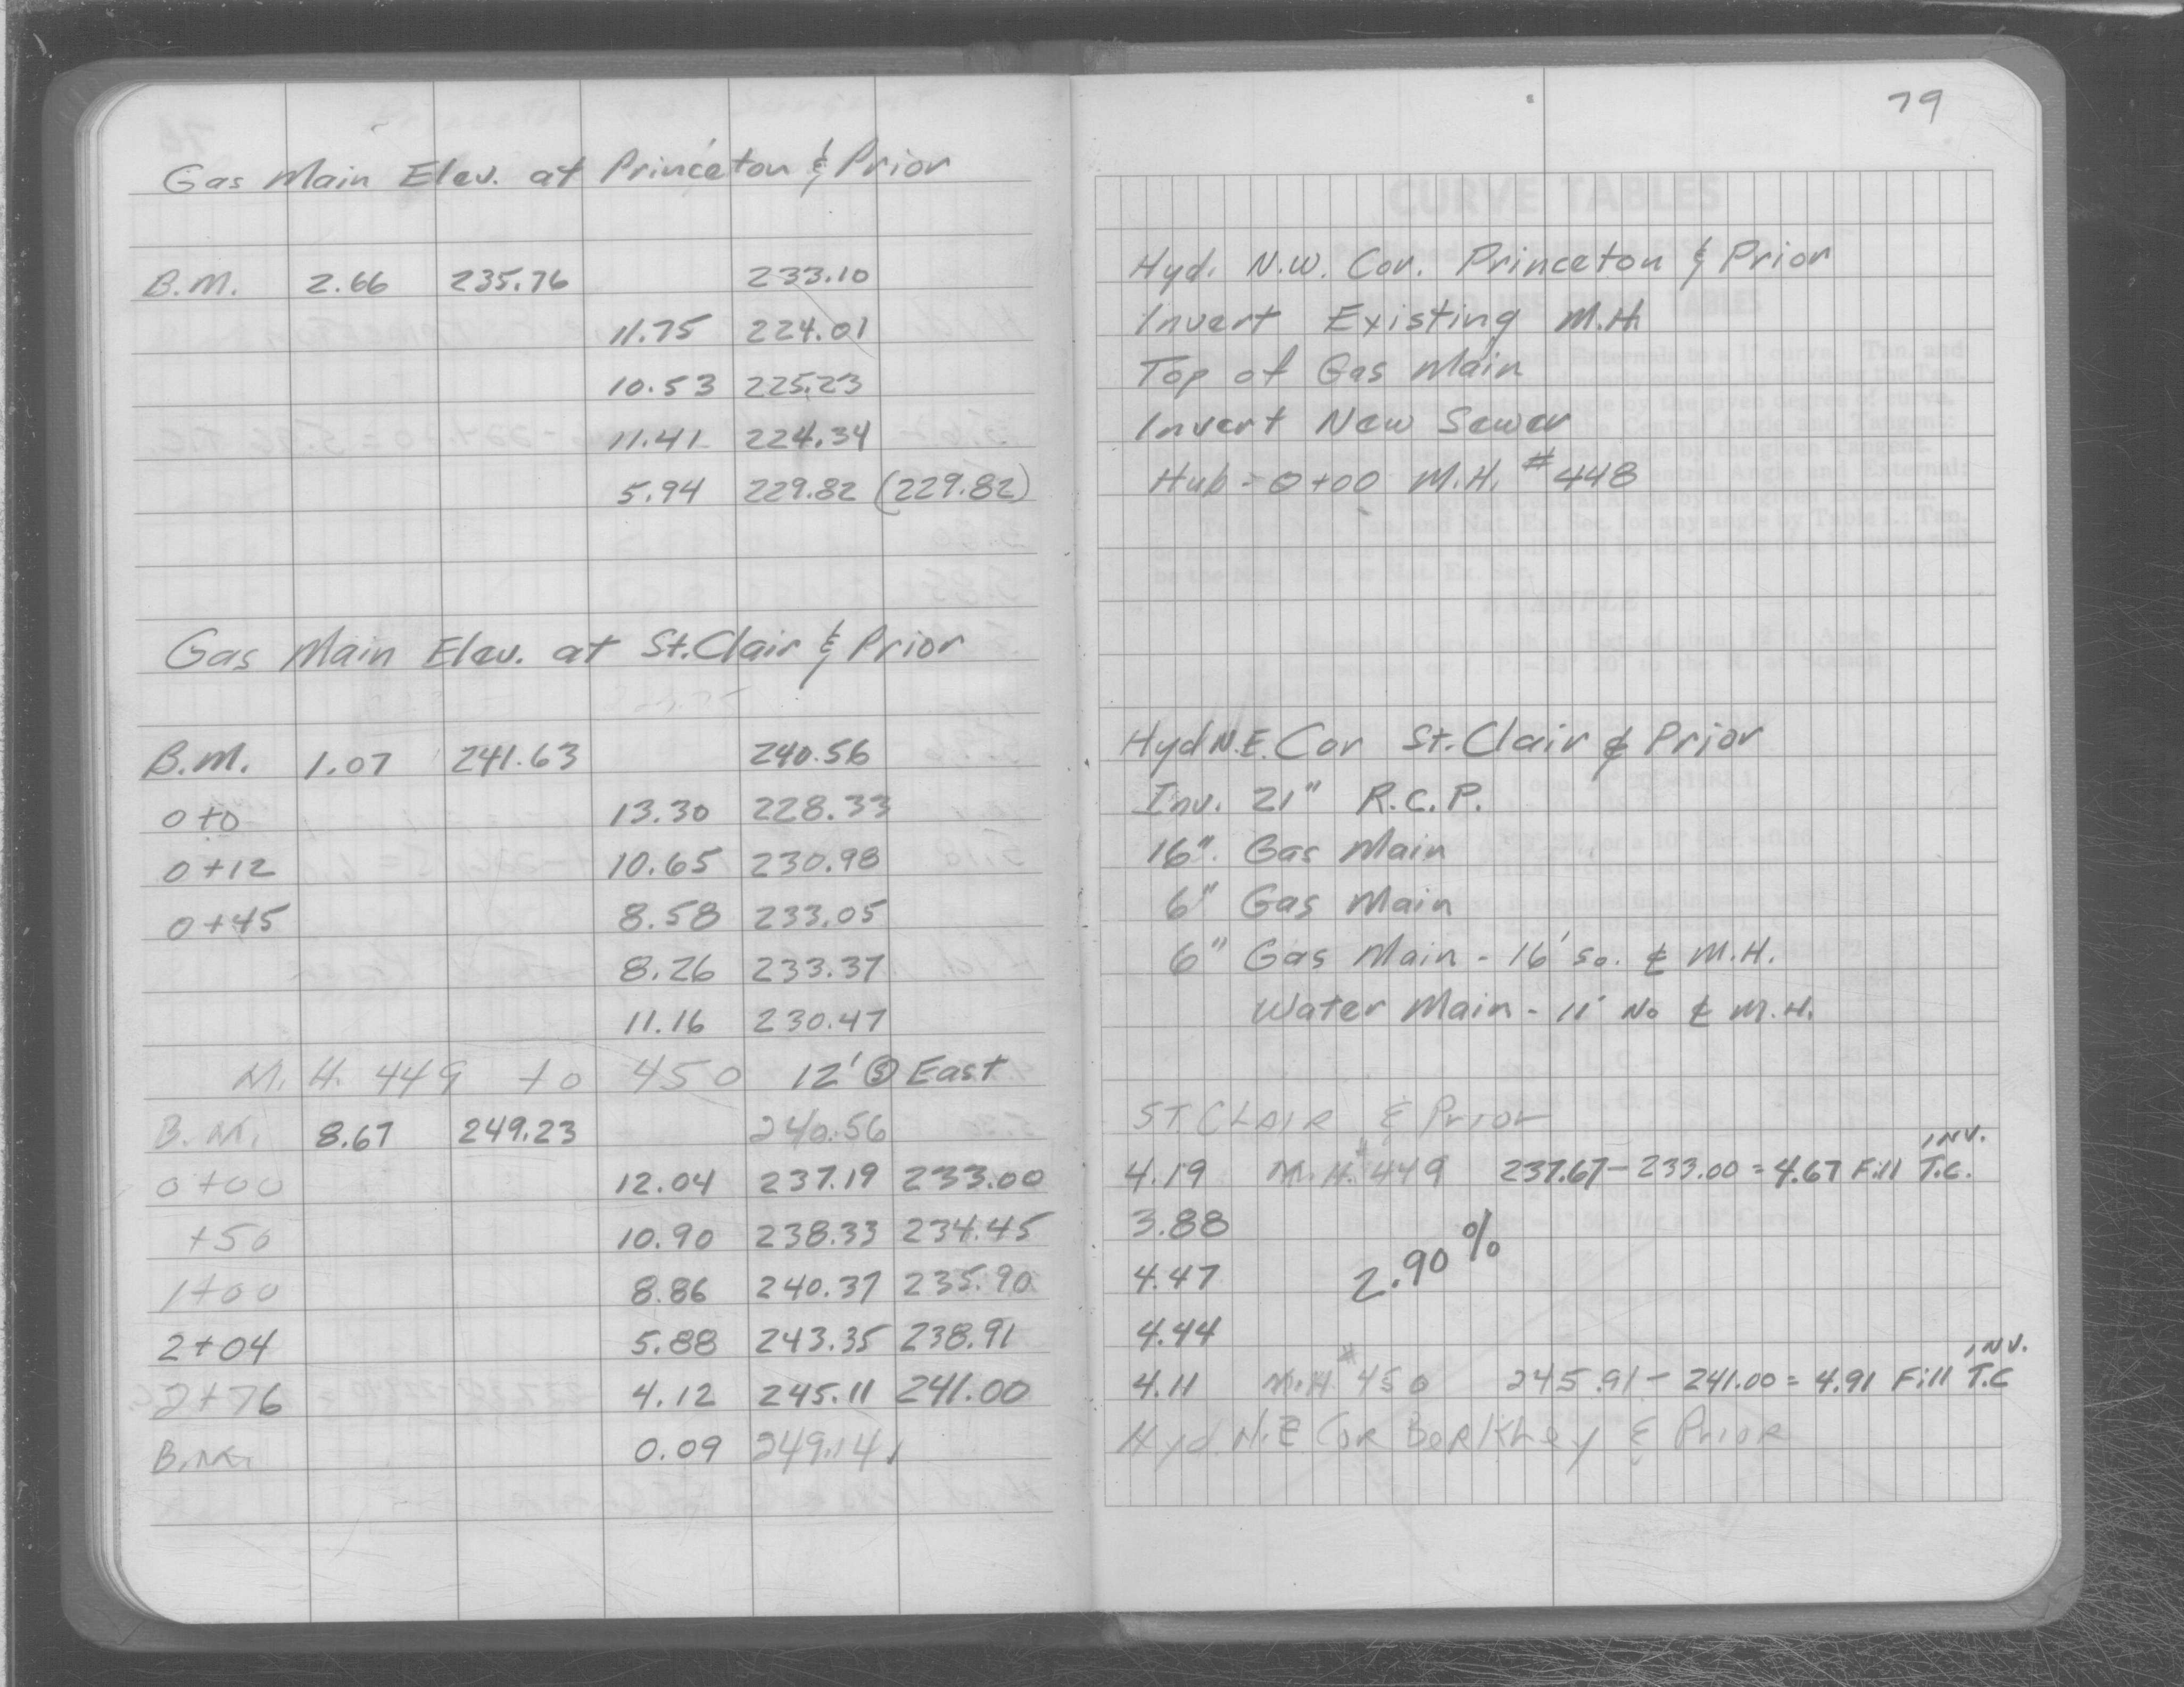 Gas Main Elev. at Princeton & Prior
B.M. 2.66 235.76 233.10
11.75 224.01
10.53 225.23
11.41 224.34
5.94 229.82 (229.82)
Gas Main Elev. at St.Clair & Prior
B.M. 1.07 241.63 240.56
0+0 13.30 228.33
0+12 10.65 230.98
0+45 8.58 233.05
8.26 233.37
11.16 230.47
M.H. 449 to 450 12' Ⓢ East
B.M. 8.67 249.23 240.56
0+00 12.04 237.19 233.00
+50 10.90 238.33 234.45
1+00 8.86 240.37 235.90
2+04 5.88 243.35 238.91
2+76 4.12 245.11 241.00
B.M. 0.09 249.14
79
Hyd. N.W. Cor. Princeton & Prior
Invert Existing M.H.
Top of Gas Main
Invert New Sewer
Hub - 0+00 M.H. #448
Hyd N.E. Cor St. Clair & Prior
Inv. 21" R.C.P.
16" Gas Main
6" Gas Main
6" Gas Main - 16' So. ℄ M.H.
Water Main - 11' No ℄ M.H.
ST. CLAIR & Prior
4.19 M.H. #449 237.67 - 233.00 = 4.67 Fill INV. T.C.
3.88
2.90 %
4.47
4.44
4.11 M.H. #450 245.91 - 241.00 = 4.91 Fill INV. T.C
Hyd. N.E Cor BerKley & Prior